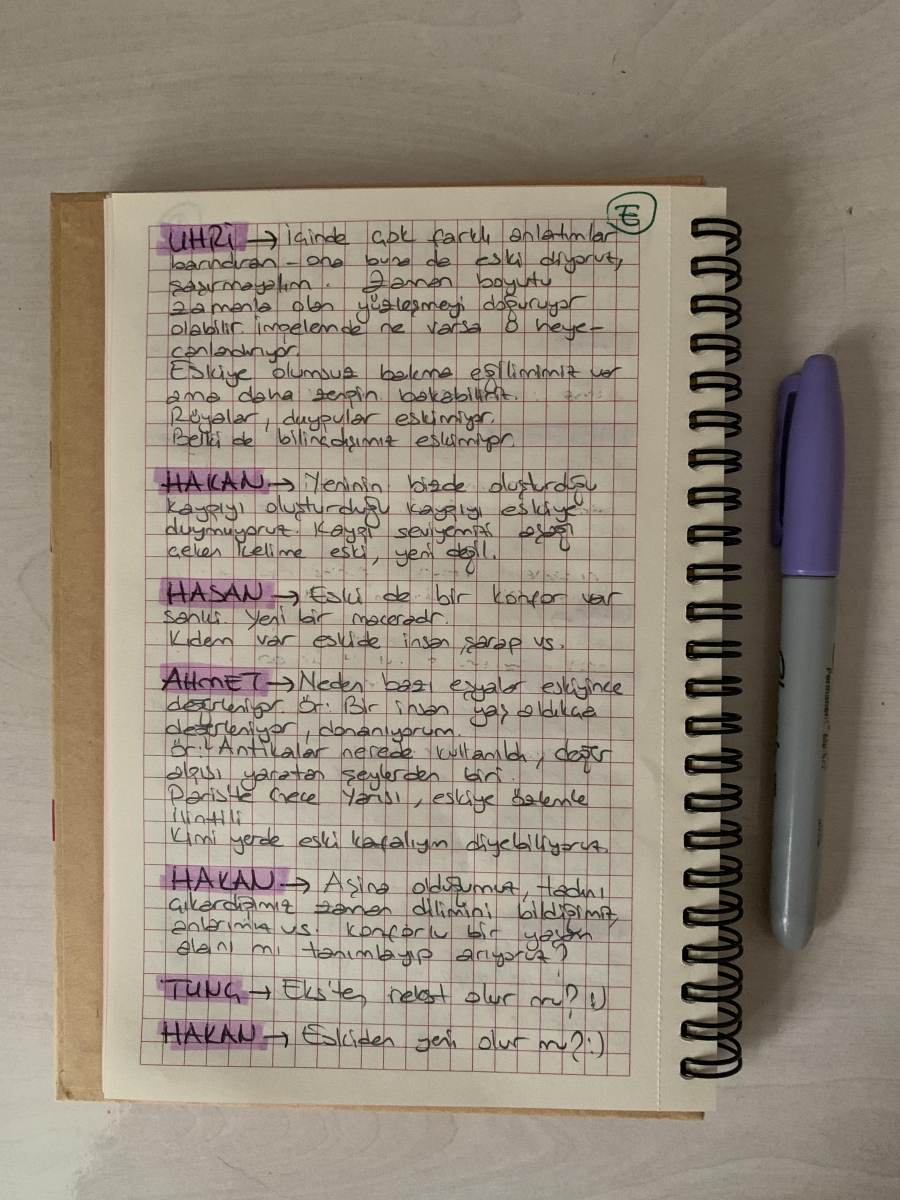 E
UHRİ → İçinde çok farklı anlatımlar
barındıran - ona buna da eski diyoruz,
şaşırmayalım. Zaman boyutu
zamanla olan yüzleşmeyi doğuruyor
olabilir. İmgelemde ne varsa o heye-
canlandırıyor.
Eskiye olumsuz bakma eğilimimiz var
ama daha zengin bakabiliriz.
Rüyalar, duygular eskimiyor.
Belki de bilinçdışımız eskimiyor.
HAKAN → Yeninin bizde oluşturduğu
kaygıyı oluşturduğu kaygıyı eskiye
duymuyoruz. Kaygı seviyemizi aşağı
çeken kelime eski, yeni değil.
HASAN → Eski de bir konfor var
sanki. Yeni bir maceradır.
Kıdem var eskide insan, şarap vs.
AHMET → Neden bazı eşyalar eskiyince
değerleniyor. Ör: Bir insan yaş aldıkça
değerleniyor, donanıyorum.
Ör: Antikalar nerede kullanıldı, değer
algısı yaratan şeylerden biri.
Paris'te Gece Yarısı, eskiye özlemle
ilintili
Kimi yerde eski kafalıyım diyebiliyoruz.
HAKAN → Aşina olduğumuz, tadını
çıkardığımız zaman dilimini bildiğimiz,
anlarımıza vs. konforlu bir yaşam
alanı mı tanımlayıp arıyoruz?
TUNÇ → olur mu? :)
HAKAN → Eskiden yeni olur mu? :)